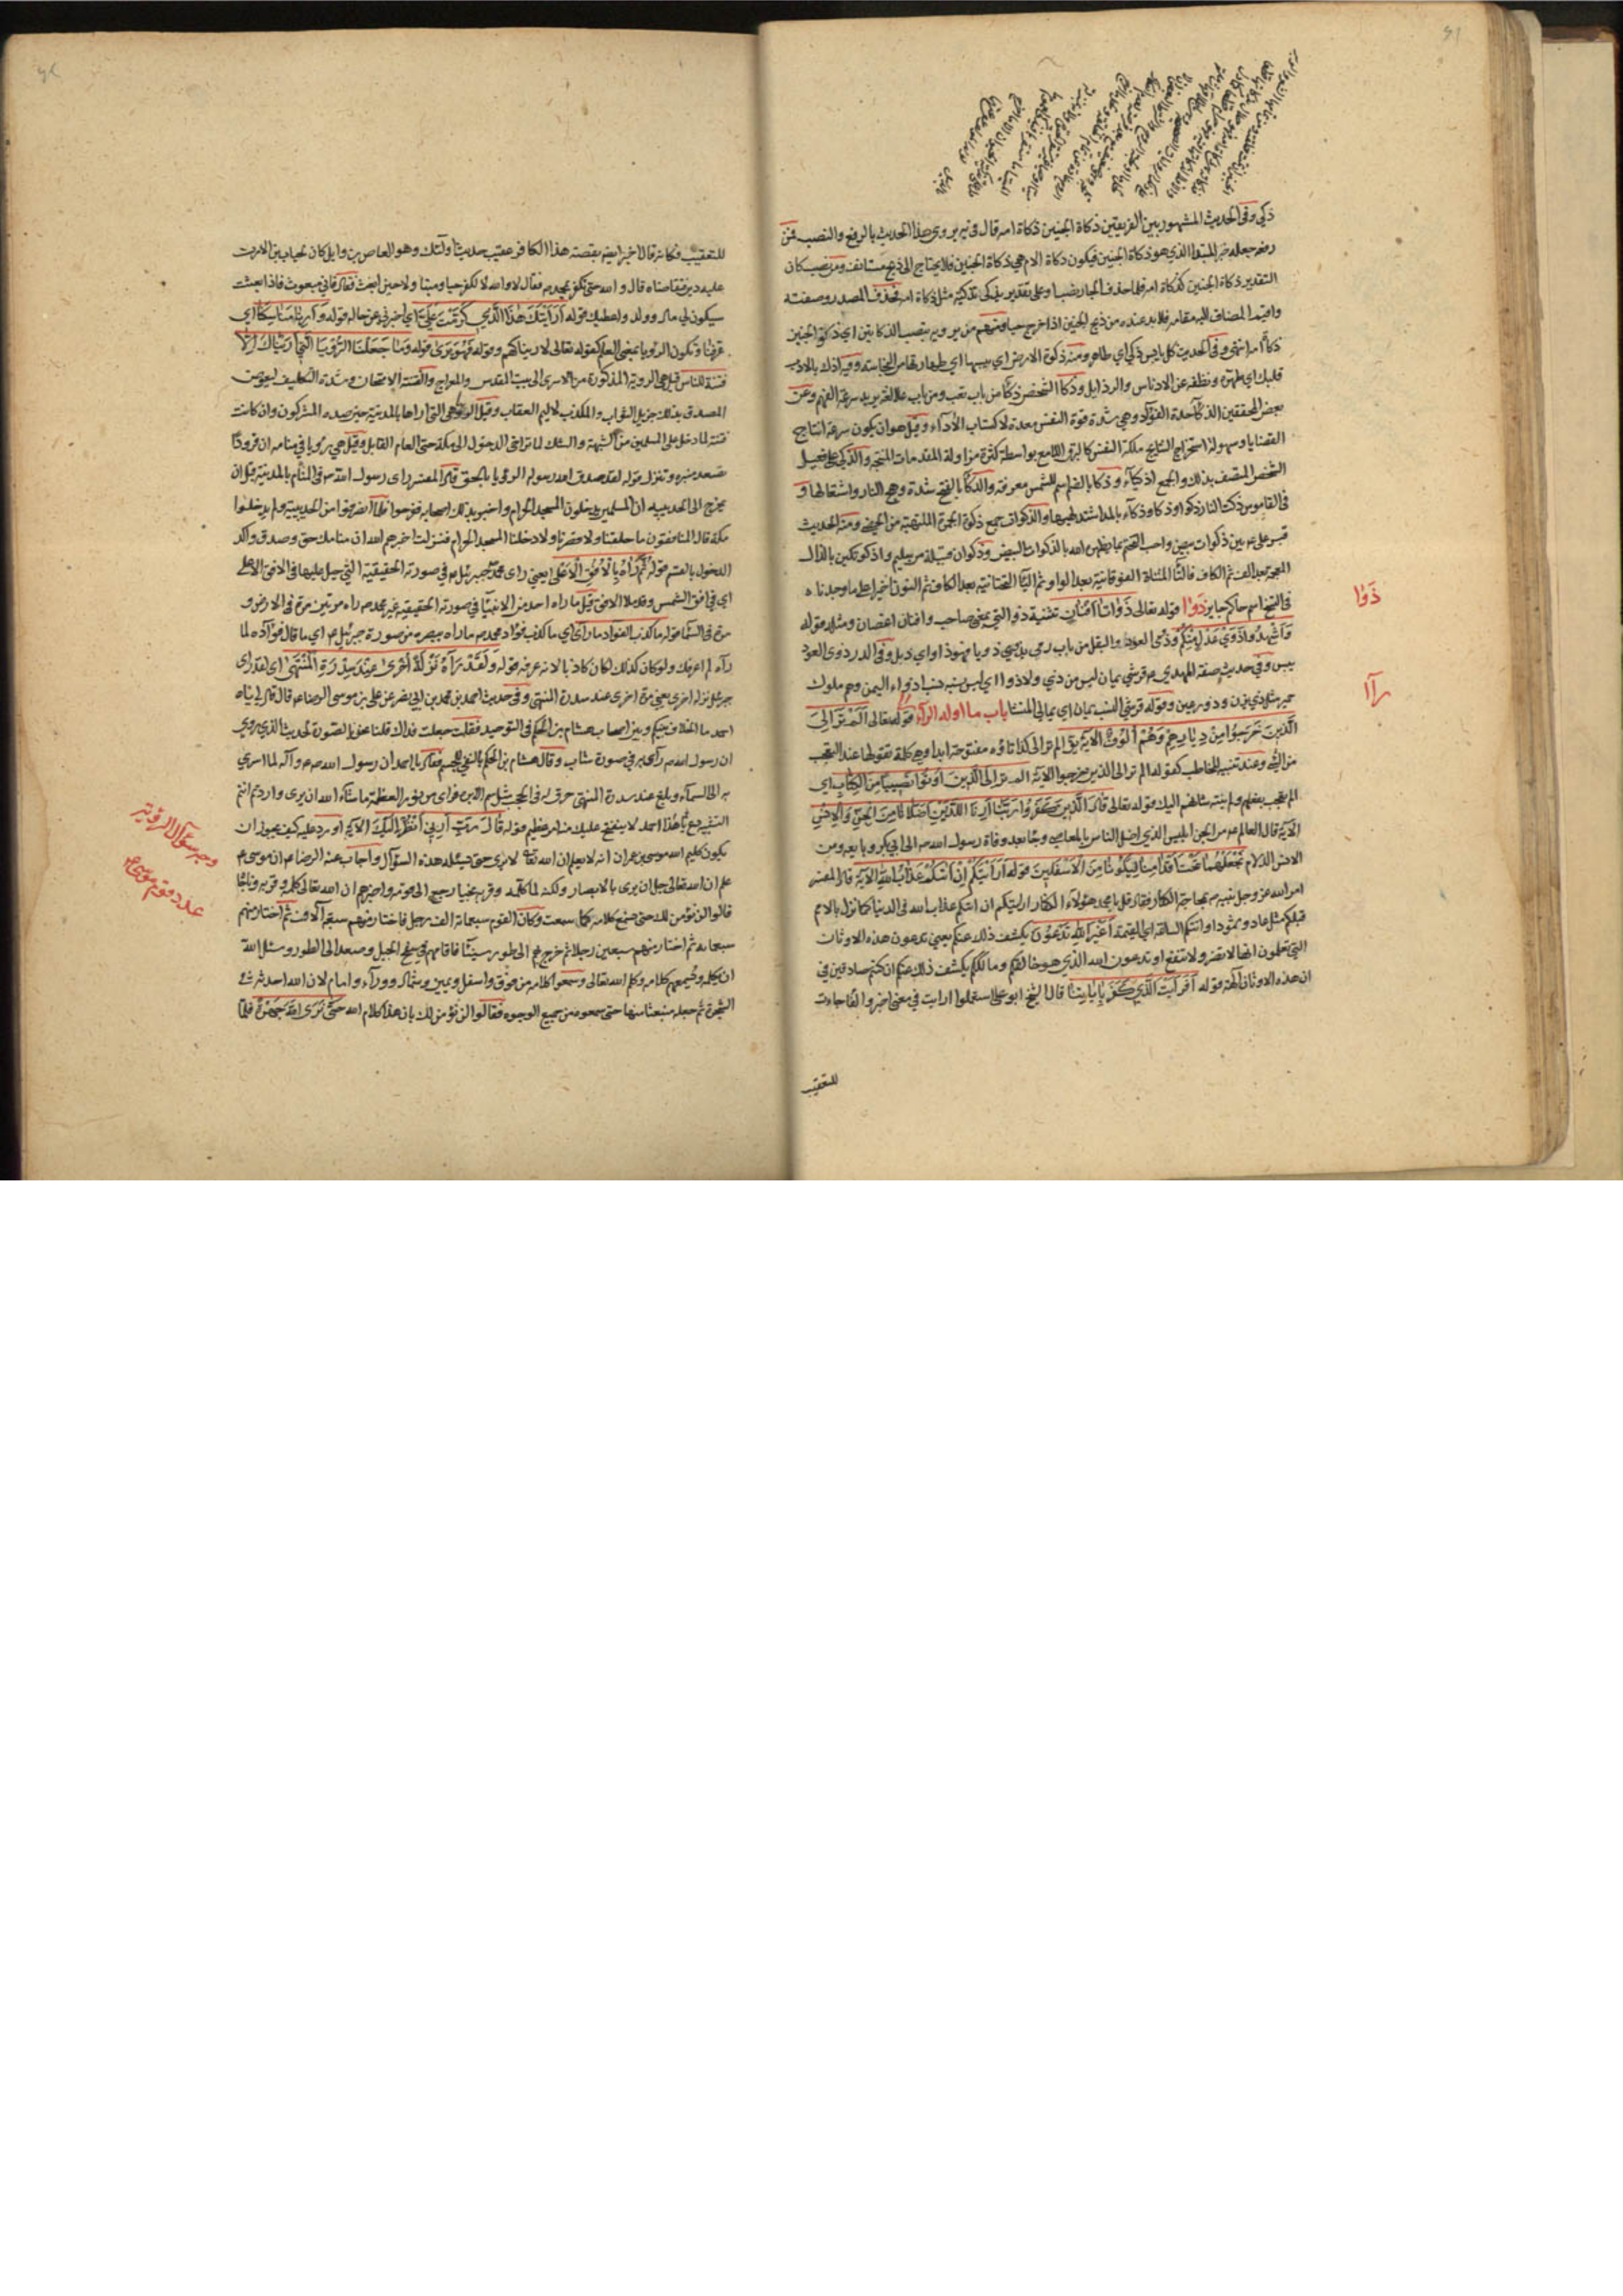 ذكي وفي الحديث المشهور بين الفريقين ذكاة الجنين ذكاة امه قال في يه يروى هذا الحديث بالرفع والنصب فمن
رفعه جعله خبر المبتدا الذي هو ذكاة الجنين فيكون ذكاة الام هي ذكاة الجنين فلا يحتاج الى ذبح مستانف ومن نصب كان
التقدير ذكاة الجنين كذكاة امه فلما حذف الجار نصب او على تقدير يذكى تذكية مثل ذكاة امه فحذف المصدر وصفته
واقيم المضاف اليه مقامه فلا بد عنده من ذبح الجنين اذا خرج حيا ومنهم من يرويه بنصب الذكاتين اي ذكوا الجنين
ذكاة امه انتهى وفي الحديث كل يابس ذكي اي طاهر ومنه ذكوة الارض اي يبسها اي طهارتها من النجاسة وفيه اذك بالادب
قلبك اي طهره ونظفه عن الادناس والرذايل وذكا الشخص ذكا من باب تعب ومن باب علا لغة يريد سرعة الفهم وعن
بعض المحققين الذكاء حدة الفؤاد وهي شدة قوة النفس معدة لاكتساب الآراء وقيل هو ان يكون سرعة انتاج
القضايا وسهولة استخراج النتايج ملكة النفس كالبرق اللامع بواسطة كثرة مزاولة المقدمات المنتجة والذكي على فعيل
الشخص المتصف بذلك والجمع اذكياء وذكا بالضم اسم للشمس معرفة والذكا بالفتح شدة وهج النار واشتعالها و
في القاموس ذكت النار ذكوا وذكا وذكاء بالمد اشتد لهبها والذكوات جمع ذكوة الجمرة الملتهبة من الحصى ومنه الحديث
قبر علي ع بين ذكوات بيض واحب التختم بما يظهره الله بالذكوات البيض وذكوان قبيلة من سليم واذكوتكين بالذال
المعجمة بعد الف ثم الكاف فالتا المثناة الفوقانية بعد الواو ثم اليا التحتانية بعد الكاف ثم النون اخيرا على ما وجدناه
في النسخ اسم حاكم جاير ذوا قوله تعالى ذواتا افنان تثنية ذو التي بمعنى صاحب وافنان اغصان ومثله قوله
واشهدوا ذوي عدل منكم وذوى العود والبقل من باب رمى يذوي ذويا فهو ذاو اي ذبل وفي الدر ذوى العود
يبس وفي حديث صفة المهدي ع قرشي يمان ليس من ذي ولا ذو اي ليس نسبه نسب اذواء اليمن وهم ملوك
حمير مثل ذي يزن وذو رعين وقوله قرشي النسب يمان اي يماني المنشا باب ما اوله الراء رآا قوله تعالى الم تر الى
الذين خرجوا من ديارهم وهم الوف الآية يق الم تر الى كذا تاؤه مفتوحة ابدا وهي كلمة تقولها عند التعجب
من الشي وعند تنبيه المخاطب كقوله الم تر الى الذين خرجوا الآية الم تر الى الذين اوتوا نصيبا من الكتاب اي
الم يعجب بفعلهم ولم ينته شانهم اليك قوله تعالى قال الذين كفروا ربنا ارنا اللذين اضلانا من الجن والانس
الآية قال العالم ع من الجن ابليس الذي اضل الناس بالمعاصي وجا بعد وفاة رسول الله ص الى ابي بكر وبايعه ومن
الانس نجعلهما تحت اقدامنا ليكونا من الاسفلين قوله ارايتكم ان اتيكم عذاب الله الآية قال المفسر
امر الله عز وجل نبيه ص بمحاجة الكفار فقال قل يا محمد هؤلاء الكفار ارايتكم ان اتيكم عذاب الله في الدنيا كما نزل بالامم
قبلكم مثل عاد وثمود او اتتكم الساعة اي القيمة اغير الله تدعون يكشف ذلك عنكم يعني تدعون هذه الاوثان
التي تعلمون انها لا تضر ولا تنفع او تدعون الله الذي هو خالقكم ومالككم يكشف ذلك عنكم ان كنتم صادقين في
ان هذه الاوثان آلهة قوله افرايت الذي كفر بآياتنا قال الشيخ ابو علي استعملوا ارايت في معنى اخبر والفا جاءت
للتعقيب
ذوا
رآا
للتعقيب فكانه قال اخبر ايضا بقصة هذا الكافر عقيب حديث اولئك وهو العاص بن وايل كان لخباب بن الارت
عليه دين فتقاضاه قال لا والله حتى تكفر بمحمد ص فقال لا والله لا اكفر حيا وميتا ولا حين ابعث فقال فاني مبعوث فاذا بعثت
سيكون لي مال وولد واعطيك قوله ارايتك هذا الذي كرمت علي اي اخبرني عن حاله قوله وارنا مناسكنا اي
عرفنا وتكون الرؤيا بمعنى العلم كقوله تعالى لاريناكهم وقوله فهو يرى قوله وما جعلنا الرؤيا التي اريناك الا
فتنة للناس قيل هي الروية المذكورة من الاسرى الى بيت المقدس والمعراج والفتنة الامتحان وشدة التكليف ليعرض
المصدق بذلك جزيل الثواب والمكذب لاليم العقاب وقيل الرؤيا هي التي اراها بالمدينة حين صده المشركون وان كانت
فتنة لما دخل على المسلمين من الشبهة والشك لما تراخى الدخول الى مكة حتى العام القابل وقيل هي رؤيا في منامه ان قرودا
تصعد منبره وتنزل قوله لقد صدق الله رسوله الرؤيا بالحق قال المفسر راى رسول الله ص في المنام بالمدينة قبل ان
يخرج الى الحديبية ان المسلمين يدخلون المسجد الحرام واخبر بذلك اصحابه ففرحوا فلما انصرفوا من الحديبية ولم يدخلوا
مكة قال المنافقون ما حلقنا ولا قصرنا ولا دخلنا المسجد الحرام فنزلت اخبرهم الله ان منامك حق وصدق واكد
الدخول بالقسم قوله ثم رآه بالافق الاعلى يعني راى محمد جبرئيل ع في صورته الحقيقية التي جبل عليها في الافق الاعلى
اي في افق الشمس وقد ملا الافق قيل ما راه احد من الانبيا في صورته الحقيقية غير محمد ص راه مرتين مرة في الارض و
مرة في السما قوله ما كذب الفؤاد ما راى اي ما كذب فؤاد محمد ص ما راه ببصره من صورة جبرئيل ع اي ما قال فؤاده لما
رآه لم اعرفك ولو كان كذلك لكان كاذبا لانه عرفه قوله ولقد رآه نزلة اخرى عند سدرة المنتهى اي لقد راى
جبرئيل نزلة اخرى يعني مرة اخرى عند سدرة المنتهى وفي حديث احمد بن محمد بن ابي نصر عن علي بن موسى الرضا ع قال قال لي يا
احمد ما الخلاف بينكم وبين اصحاب هشام بن الحكم في التوحيد فقلت جعلت فداك قلنا نحن بالصورة للحديث الذي روي
ان رسول الله ص راى ربه في صورة شاب وقال هشام بن الحكم بالنفي للجسم فقال يا احمد ان رسول الله ص لما اسري
به الى السماء وبلغ عند سدرة المنتهى خرق له في الحجب مثل سم الابرة فراى من نور العظمة ما شاء الله ان يرى واردتم انتم
التشبيه دع هذا يا احمد لا ينفتح عليك منه امر عظيم قوله قال رب ارني انظر اليك الآية اورد عليه كيف يجوز ان
يكون كليم الله موسى بن عمران ع لا يعلم ان الله تعالى لا يرى حتى يسئله هذه السؤال واجاب عنه الرضا ع ان موسى ع
علم ان الله تعالى جل ان يرى بالابصار ولكنه لما كلمه وقربه نجيا رجع الى قومه واخبرهم ان الله تعالى كلمه وقربه وناجاه
قالوا لن نؤمن لك حتى نسمع كلامه كما سمعت وكان القوم سبعمائة الف رجل فاختار منهم سبعة آلاف ثم اختار منهم
سبعمائة ثم اختار منهم سبعين رجلا ثم خرج بهم الى طور سينا فاقامهم في سفح الجبل وصعد الى الطور وسئل الله
ان يكلمه ويسمعهم كلامه وكلم الله تعالى وسمعوا كلامه من فوق واسفل ويمين وشمال ووراء وامام لان الله احدثه في
الشجرة ثم جعله منبعثا منها حتى سمعوه من جميع الوجوه فقالوا لن نؤمن لك بان هذا كلام الله حتى نرى الله جهرة فلما
وجه سؤال الرؤية
عدد قوم موسى ع